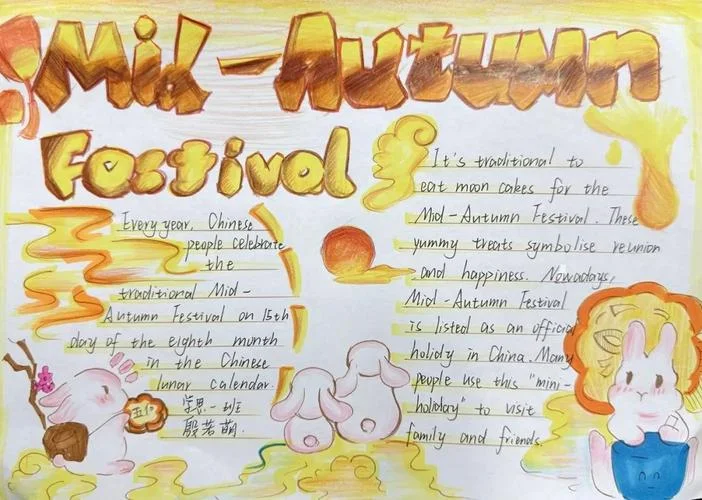 Mid-Autumn
Festival
Every year, Chinese
people celebrate
the
traditional Mid-
Autumn Festival on 15th
day of the eighth month
in the Chinese
lunar calendar.
学思一班
殷若萌
五仁
It's traditional to
eat moon cakes for the
Mid-Autumn Festival. These
yummy treats symbolise reunion
and happiness. Nowadays,
Mid-Autumn Festival
is listed as an official
holidy in China. Many
people use this "mini-
holiday" to visit
family and friends.